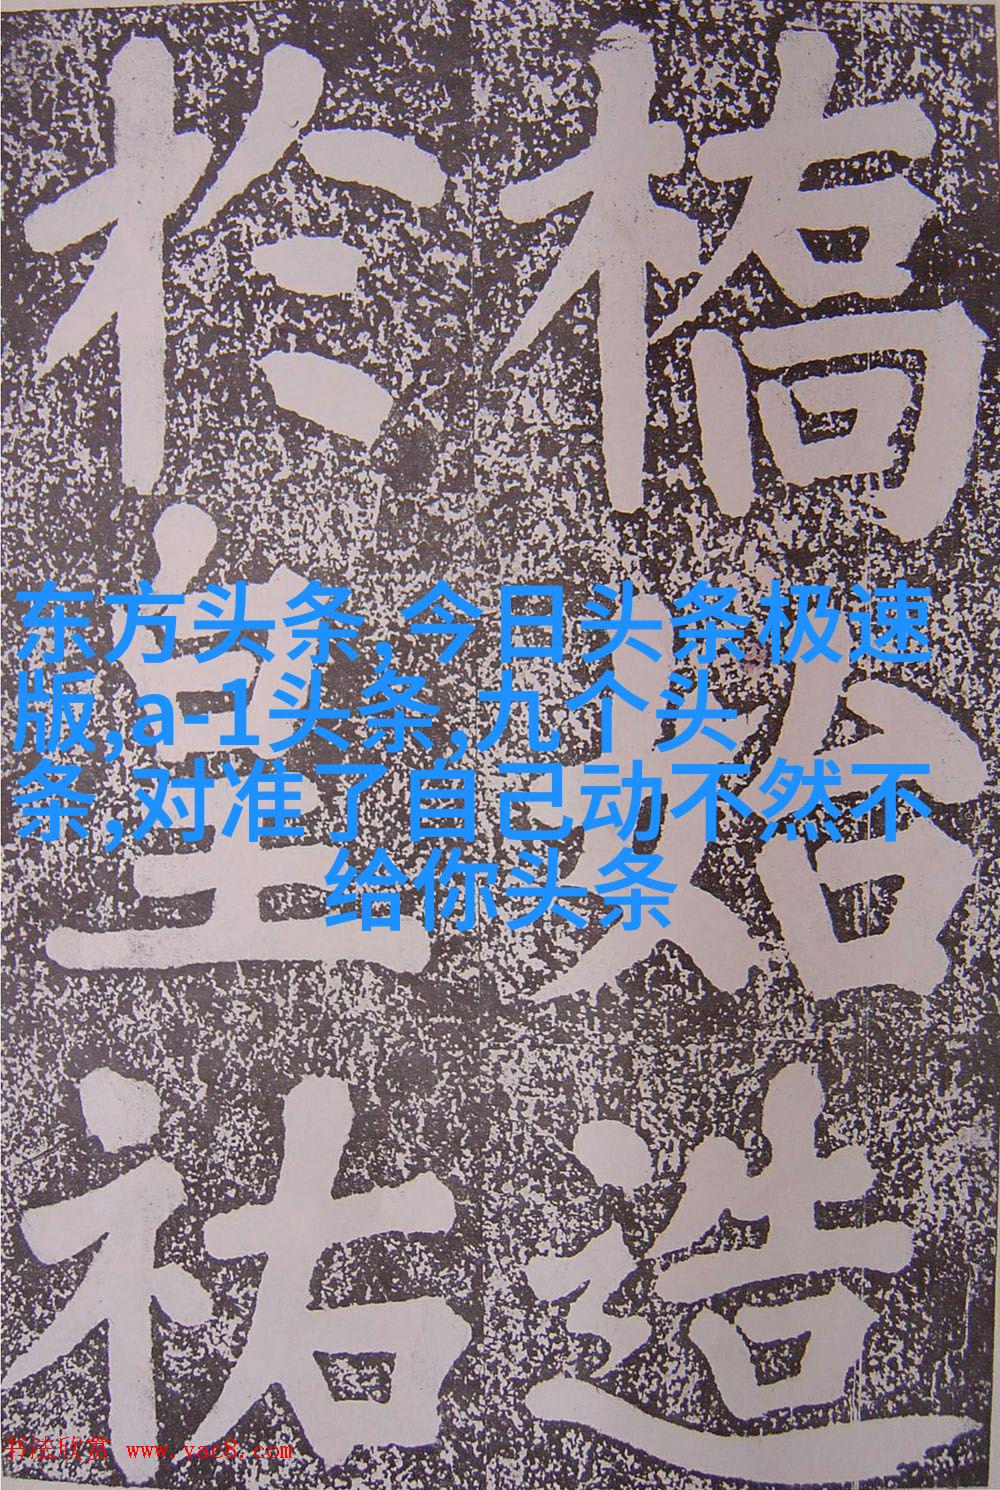 橋始造
於皇祐
东方头条,今日头条极速
版,a-1头条,九个头
条,对准了自己动不然不
给你头条
书法欣赏 www.yac8.com